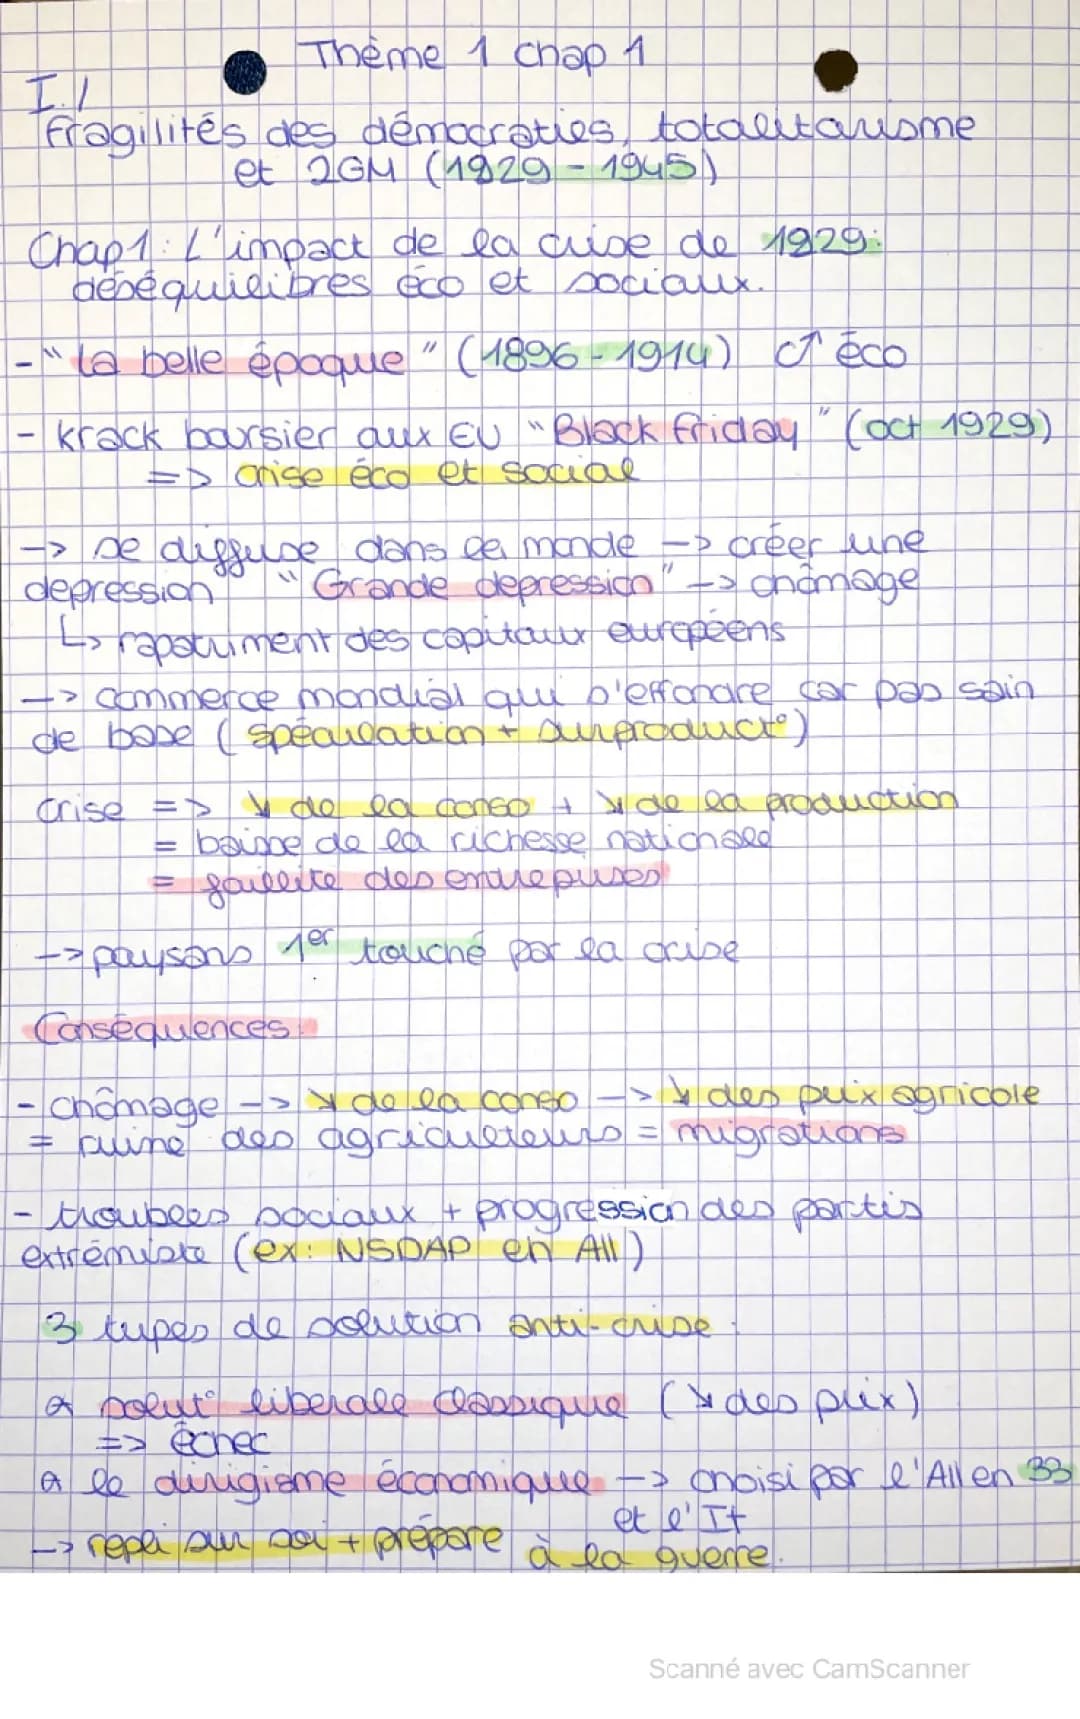 Thème 1 chap 1
I.1
Fragilités des démocraties, totalitarisme
et 2GM (1929 - 1945)
Chap1: L'impact de la crise de 1929:
déséquilibres éco et sociaux.
- "la belle époque" (1896 - 1914) ↗ éco
- krack boursier aux EU "Black Friday" (oct 1929)
=> crise éco et social
-> se diffuse dans le monde -> créer une
depression "Grande depression" -> chômage
↳ rapatriment des capitaux européens
-> commerce mondial qui s'effondre car pas sain
de base (spéculation + surproduct°)
crise => ↘ de la conso + ↘ de la production
= baisse de la richesse nationale
= faillite des entreprises
-> paysans 1er touché par la crise
Conséquences:
- chômage -> ↘ de la conso -> ↘ des prix agricole
= ruine des agriculteurs = migrations
- troubles sociaux + progression des partis
extrémiste (ex: NSDAP en All)
3 types de solution anti-crise:
solut° libérale classique (↘ des prix)
=> échec
le dirigisme économique -> choisi par l'All en 33
et l'It
-> repli sur soi + prépare à la guerre.
Scanné avec CamScanner